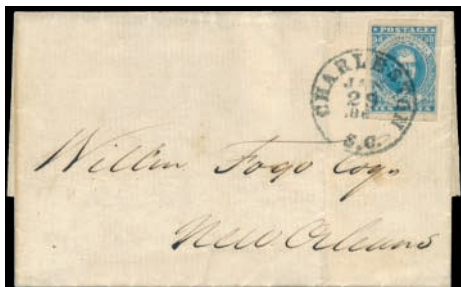 POSTAGE
CHARLESTON
29
S.C.
Willm Fogo Esqr
New Orleans